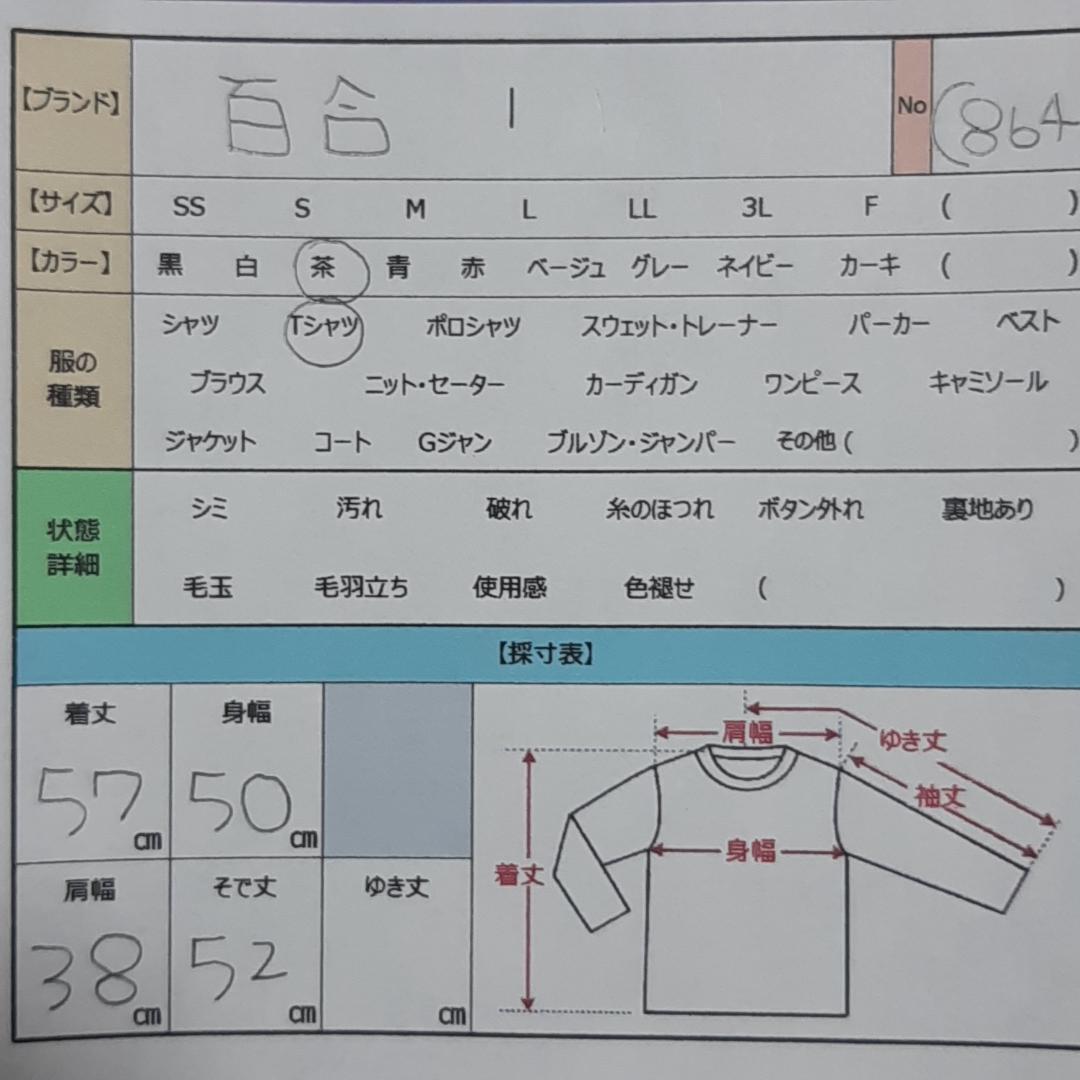 【ブランド】 百合 | No (864
【サイズ】 SS S M L LL 3L F ( )
【カラー】 黒 白 茶 青 赤 ベージュ グレー ネイビー カーキ ( )
服の種類
シャツ Tシャツ ポロシャツ スウェット・トレーナー パーカー ベスト
ブラウス ニット・セーター カーディガン ワンピース キャミソール
ジャケット コート Gジャン ブルゾン・ジャンパー その他 ( )
状態詳細
シミ 汚れ 破れ 糸のほつれ ボタン外れ 裏地あり
毛玉 毛羽立ち 使用感 色褪せ ( )
【採寸表】
着丈 身幅
57 cm 50 cm
肩幅 そで丈 ゆき丈
38 cm 52 cm cm
肩幅
ゆき丈
袖丈
身幅
着丈